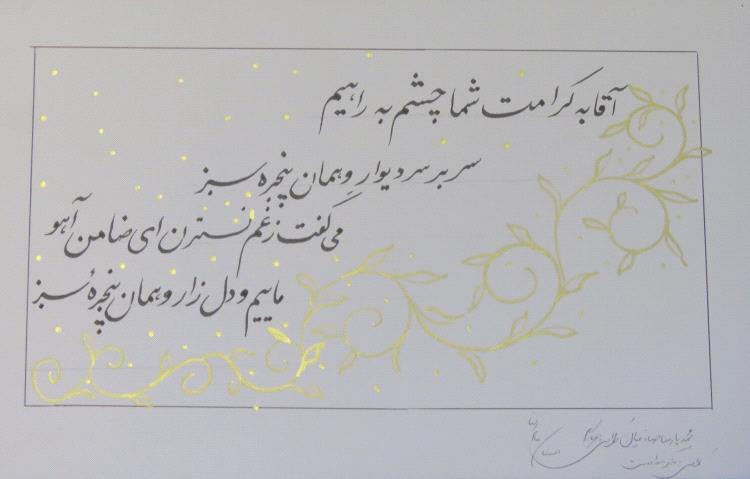 آقا به کرامت شما چشم به راهیم
سر بر سر دیوارِ و همان پنجره سبز
می گفت ز غم نسترن ای ضامن آهو
ماییم و دل زار و همان پنجرهٔ سبز